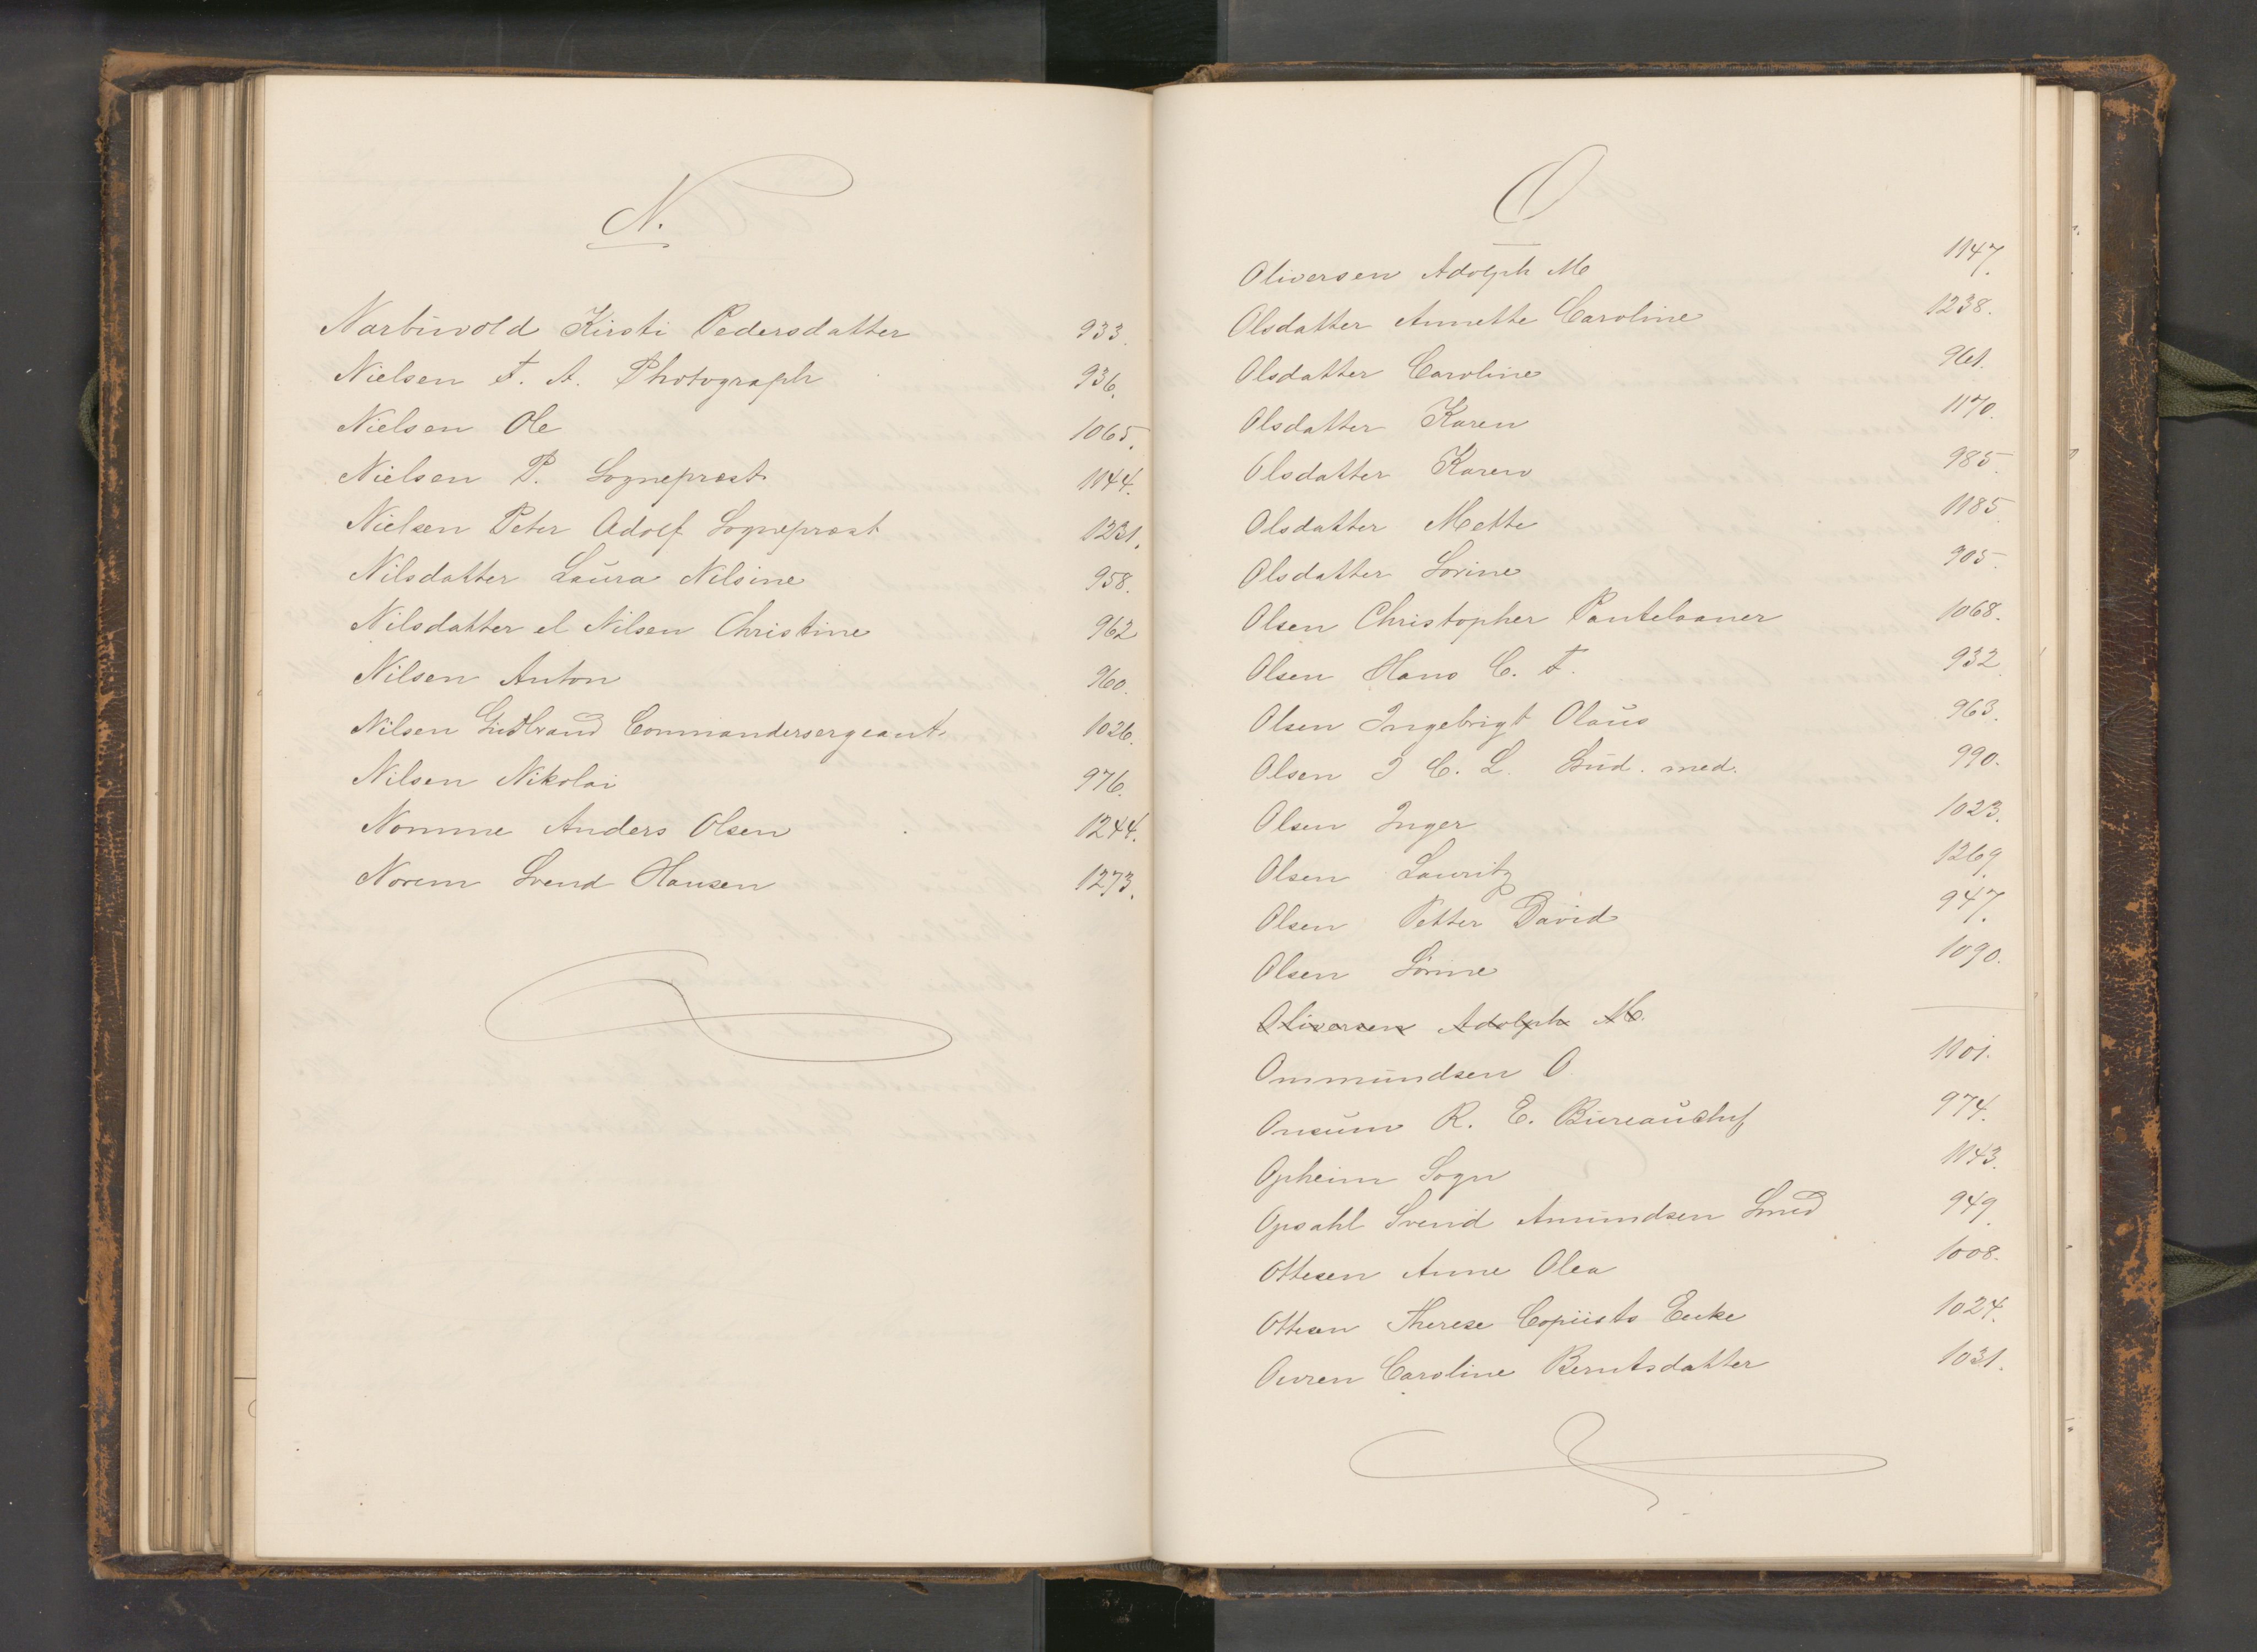 N.
Narbuvold Kirsti Pedersdatter 933.
Nielsen F. A. Photograph 936.
Nielsen Ole 1065.
Nielsen P. Sogneprest 1144.
Nielsen Peter Adolf Sogneprest 1231.
Nilsdatter Laura Nilsine 958.
Nilsdatter el Nilsen Christine 962
Nilsen Anton 960.
Nilsen Gudbrand Commandersergeant 1026.
Nilsen Nikolai 976.
Nomme Anders Olsen 1244.
Norem Svend Hansen 1273.
O
Oliversen Adolph M 1147.
Olsdatter Annette Caroline 1238.
Olsdatter Caroline 961.
Olsdatter Karen 1170.
Olsdatter Karen 985.
Olsdatter Mette 1185
Olsdatter Sorine 905.
Olsen Christopher Pantelaaner 1068.
Olsen Hans C. F. 932
Olsen Ingebrigt Olaus 963.
Olsen I C. L. Stud. med. 990.
Olsen Inger 1023.
Olsen Lauritz 1269.
Olsen Petter David 947.
Olsen Sorine 1090.
Oliversen Adolph M.
Ommundsen O. 1101.
Onsum R. E. Bureauchef 974.
Opheim Sogn 1143.
Opsahl Svend Amundsen Smed 949.
Ottesen Anne Olea 1008.
Ottesen Therese Copiists Enke 1024.
Ovren Caroline Berntsdatter 1031.